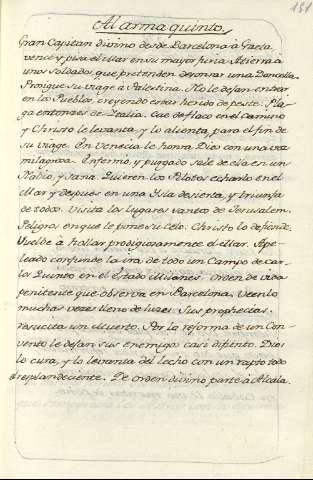 181
Al arma quinto.
Gran Capitan divino desde Barcelona à Gaeta
vence y pisa el Mar en su mayor furia. Aterra à
unos soldados, que pretenden deronrar una Doncella.
Prosigue su viage à Palestina. No le dejan entrar
en los Pueblos, creyendo estar herido de peste. Pla-
ga entonces de Italia. Cae de flaco en el camino
y Christo le levanta, y lo alienta, para el fin de
su viage. En Venecia le honra Dios con una voz
milagrosa. Enfermo, y purgado sale de ela en un
Nabio, y sana. Quieren los Pilotos echarlo en el
Mar y despues en una Isla desierta, y triunfa
de todos. Visita los lugares santos de Jerusalem.
Peligros en que le pone su celo. Christo lo defiende.
Vuelve à hollar prodigiosamente el Mar. Ape-
leado confunde la ira de todo un Campo de Car-
los Quinto en el Estado Milanes. Orden de vida
penitente que observa en Barcelona. Veenlo
muchas vezes lleno de luzes. Sus prophecias.
resucita un Muerto. Por la reforma de un Con-
vento le dejan sus enemigos casi difunto. Dios
lo cura, y lo levanta del lecho con un rapto todo
resplandeciente. De orden divino parte à Alcala.